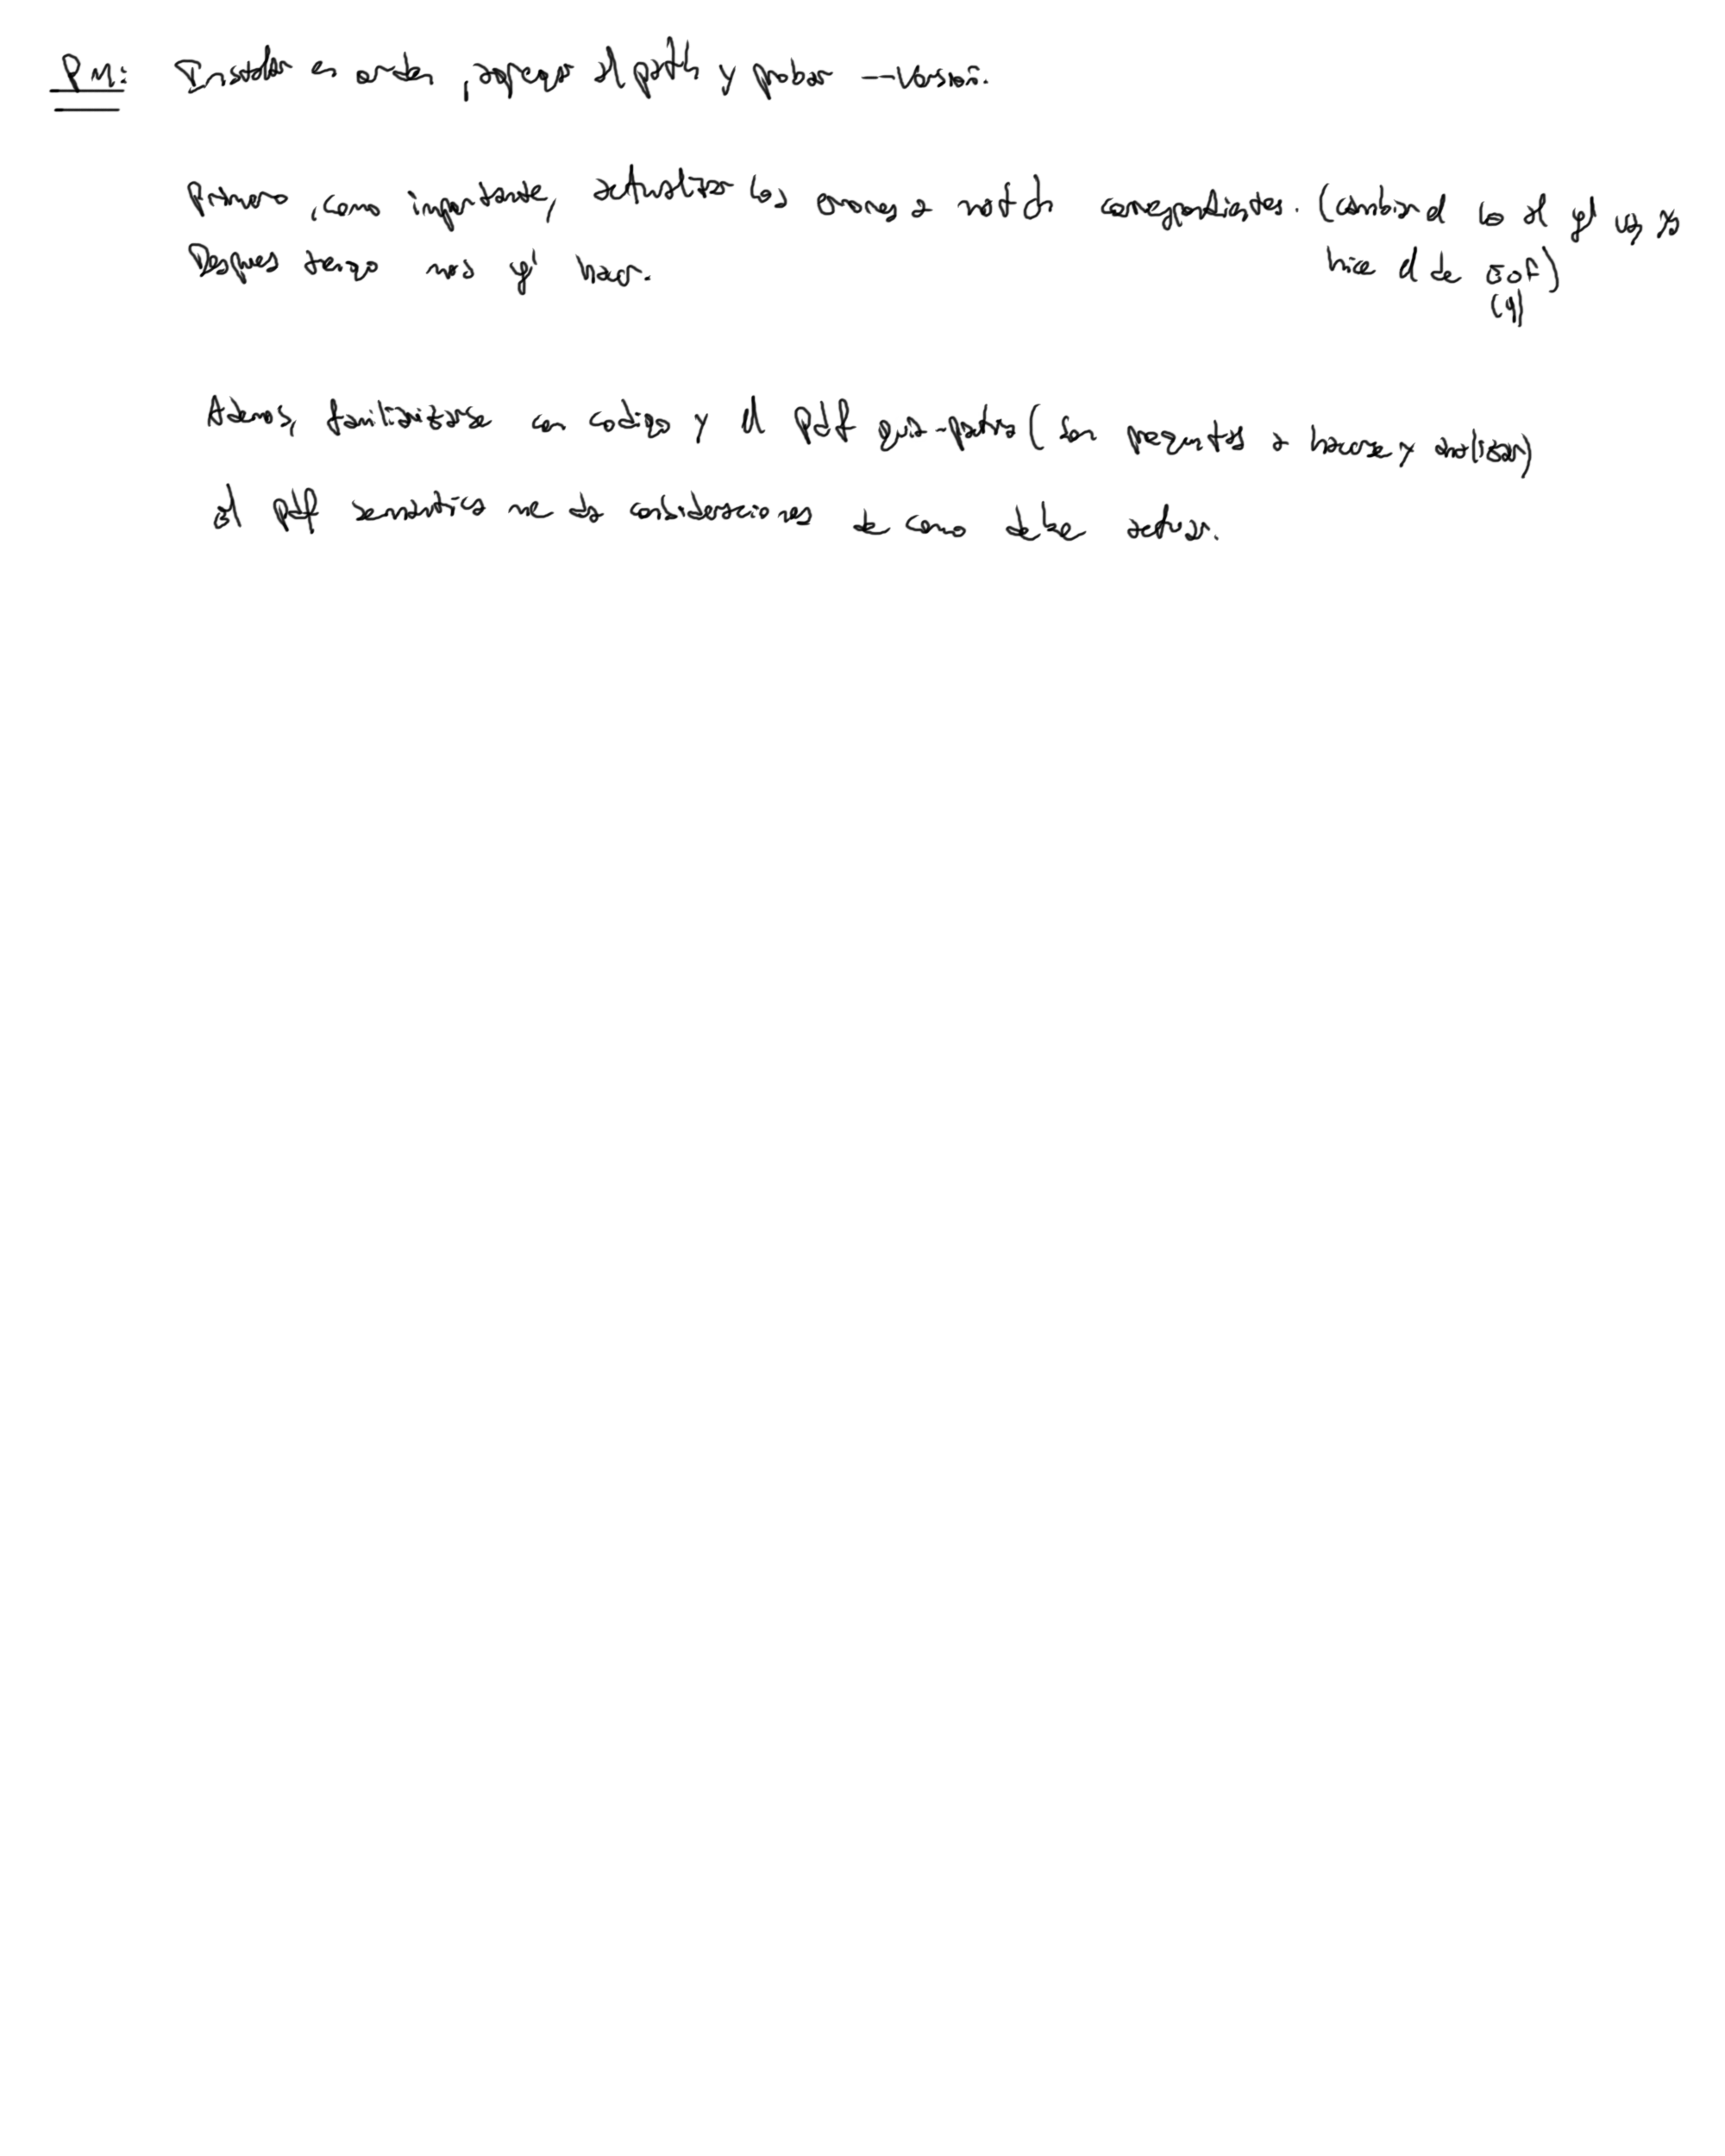 PM: Instalar en orden, agregar al path y probar --version.
Primero, como importante, actualizar los errores a match correspondientes. (cambian el lo al q' ya
Despues tengo mas q' hacer. hice el de EOF)
(4)
Ademas, familiarizarse con codigo y el pdf guia-patria (son preguntas a hacerse y analizar)
el pdf semantica me da consideraciones de como debe actuar.